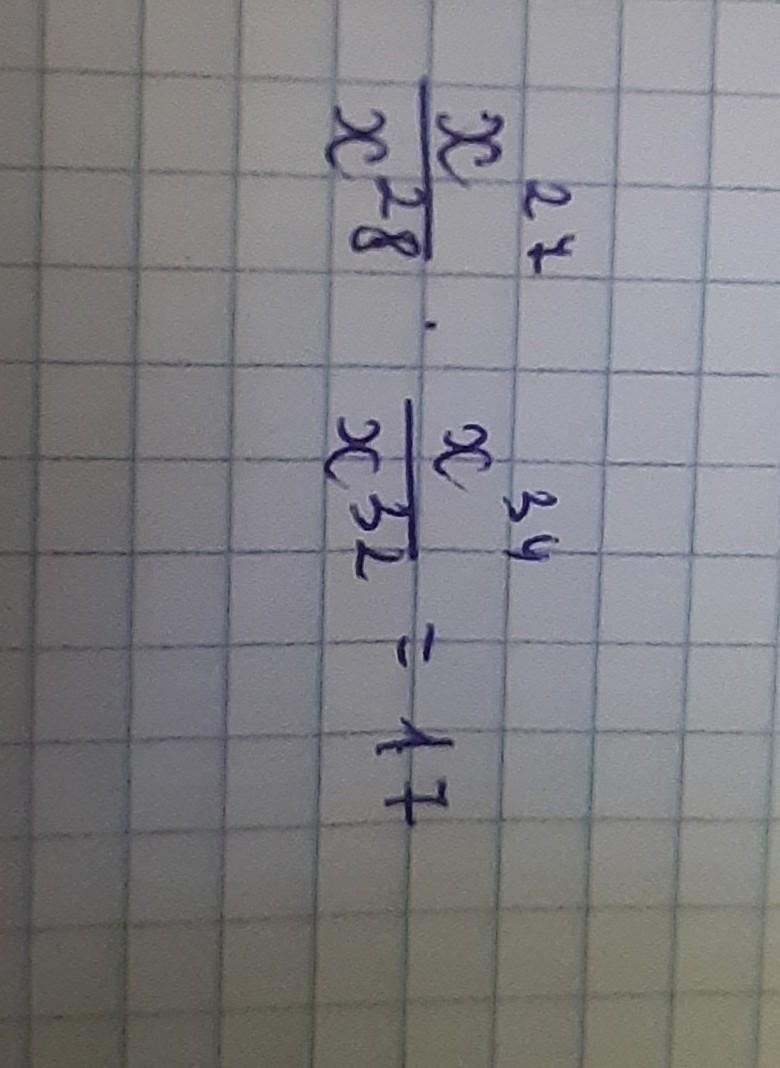 x²⁷/x²⁸ · x³⁴/x³² = 17